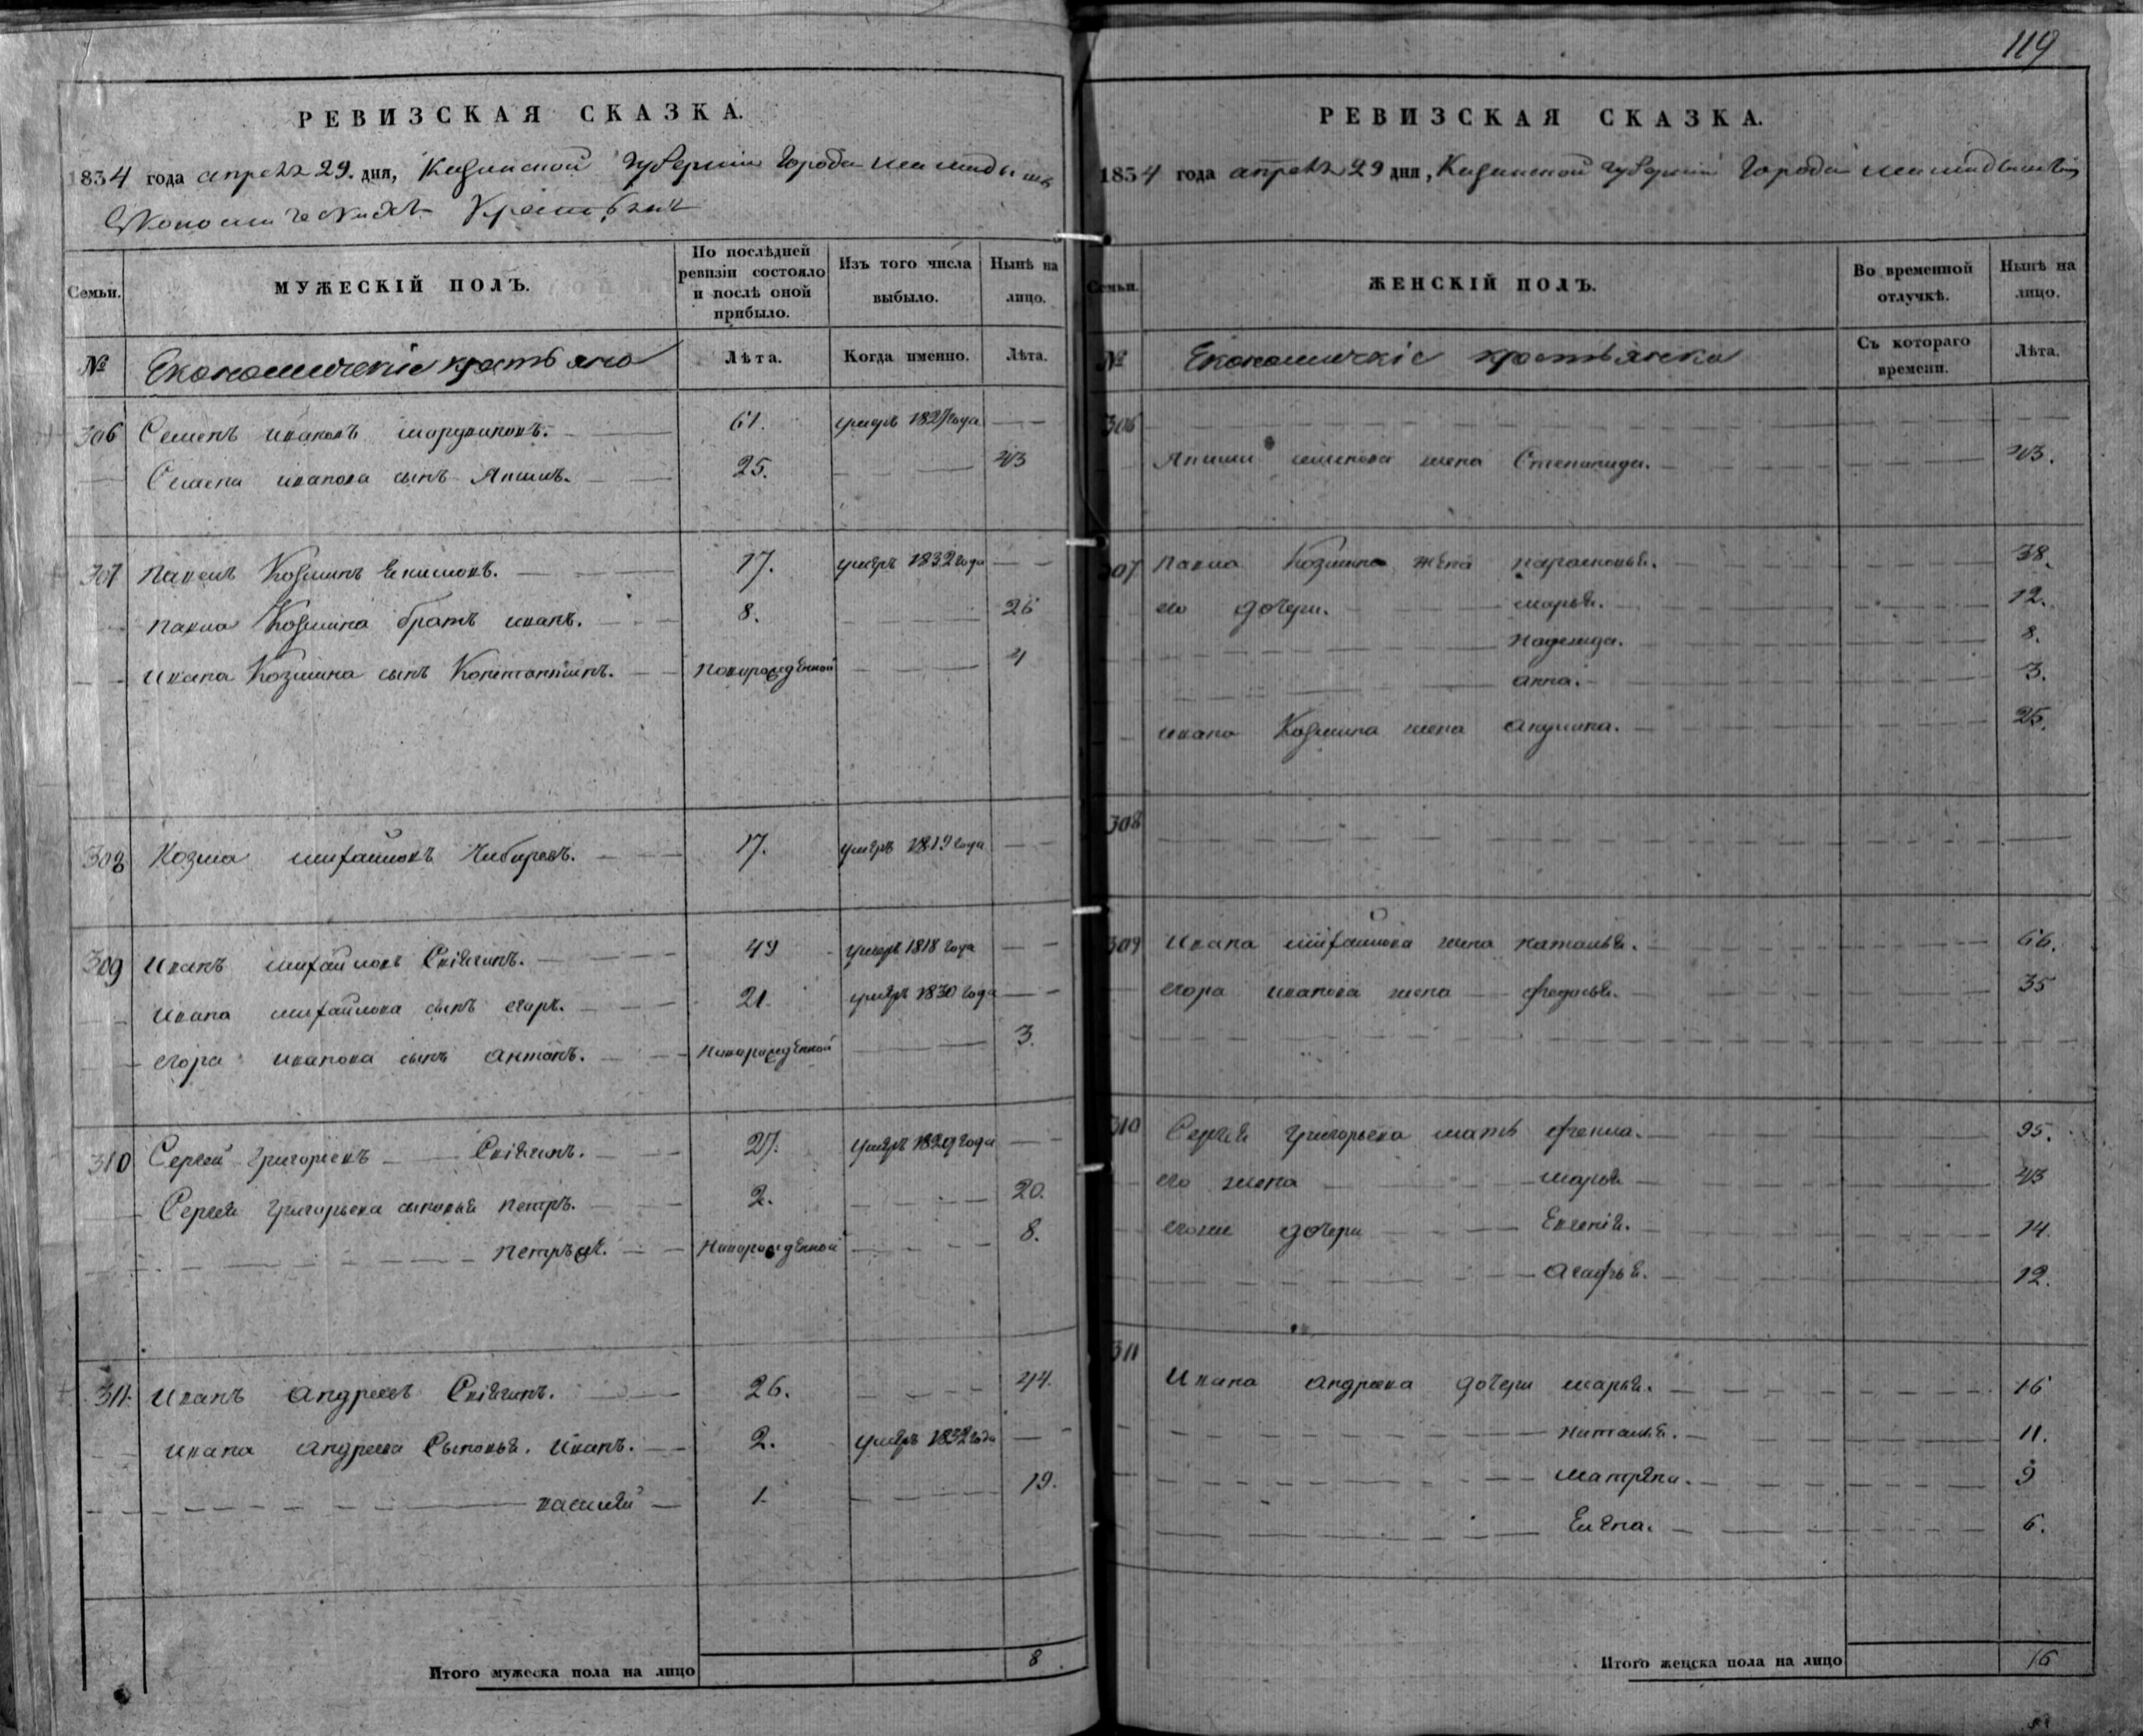 119
РЕВИЗСКАЯ СКАЗКА.
1834 года апреля 29. дня, Казанской губернии города мамадыша
Економическихъ Крестьянъ
Семьи.
МУЖЕСКІЙ ПОЛЪ.
По послѣдней ревизіи состояло и послѣ оной прибыло.
Изъ того числа выбыло.
Нынѣ на лицо.
№
Економическіе крестьяне
Лѣта.
Когда именно.
Лѣта.
306 Семенъ ивановъ 61. умеръ 1827 года — —
Семена иванова сынъ 25. — — 43
307 Павелъ Козминъ Екимовъ. 17. умеръ 1832 года — —
Павла Козмина братъ иванъ. 8. — — 26
ивана Козмина сынъ Константинъ. новорожденной — — 4
308 Козма михайловъ 17. умеръ 1819 года — —
309 иванъ михайловъ 49 умеръ 1818 года — —
ивана михайлова сынъ егоръ. 21. умеръ 1830 года — —
егора иванова сынъ антонъ. Новорожденной — — 3.
310 Сергей григорьевъ 27. умеръ 1829 года — —
Сергея григорьева сыновья петръ. 2. — — 20.
петръ же. Новорожденной — — 8.
311. иванъ андреевъ 26. — — 44.
ивана андреева Сыновья. иванъ. 2. умеръ 1832 года — —
василей 1. — — 19.
Итого мужеска пола на лицо 8.
РЕВИЗСКАЯ СКАЗКА.
1834 года апреля 29 дня, Казанской губерніи города мамадыша
Семьи.
ЖЕНСКІЙ ПОЛЪ.
Во временной отлучкѣ.
Нынѣ на лицо.
№
Економическіе крестьянки
Съ котораго времени.
Лѣта.
306 — —
семенова жена Степанида. 43.
307 Павла Козмина жена парасковья. 38.
его дочери. марья. 12.
Надежда. 8.
анна. 3.
ивана Козмина жена акулина. 25.
308 — —
309 ивана михайлова жена наталья. 66.
егора иванова жена федосья. 35
310 Сергея григорьева мать фекла. 95.
его жена марья 43
егоже дочери Евгенія. 14.
Агафья. 12.
311 Ивана андреева дочери марья. 16
наталья. 11.
матрена. 9
Елена. 6.
Итого женска пола на лицо 16